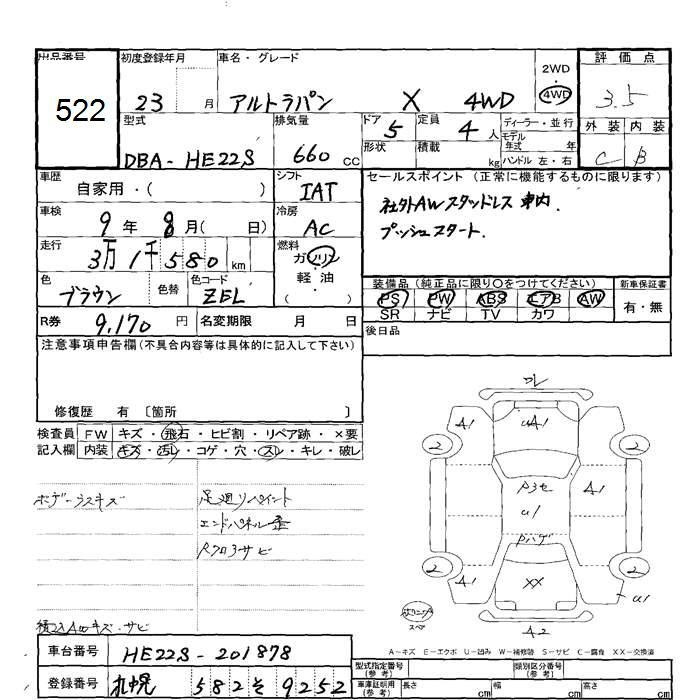 出品番号 522
初度登録年月 23 月
車名・グレード アルトラパン X 4WD
2WD・4WD
評価点 3.5
外装 C 内装 B
型式 DBA-HE22S
排気量 660 CC
ドア 5
形状
定員 4 人
積載 kg
ディーラー・並行
モデル年式 年
ハンドル 左・右
車歴 自家用・( )
シフト IAT
車検 9年 8月( 日)
冷房 AC
走行 3万1千580 km
燃料 ガソリン 軽油
色 ブラウン 色替
色コード ZEL
R券 9,170 円
名変期限 月 日
セールスポイント (正常に機能するものに限ります)
社外AWスタッドレス 車内
プッシュスタート.
装備品 (純正品に限り○をつけてください)
新車保証書
PS PW ABS エアB AW
有・無
SR ナビ TV カワ
後日品
注意事項申告欄 (不具合内容等は具体的に記入して下さい)
修復歴 有 〔箇所 〕
検査員記入欄
FW キズ・飛石・ヒビ割・リペア跡・×要
内装 キズ・汚レ・コゲ・穴・スレ・キレ・破レ
ボデーラスキズ
足廻リペイント
エンドパネル歪
Rフロアサビ
積込AWキズ・サビ
A1 uA1
2 2
Pヨセ A1
u1
Pハゲ
2 2
A1 XX A1
u1
スペア
A2
A-キズ E-エクボ U-凹み W-補修跡 S-サビ C-腐食 XX-交換済
車台番号 HE22S-201878
登録番号 札幌 582 そ 9252
型式指定番号 (参考)
類別区分番号 (参考)
車庫証明用 (参考) 長さ cm 幅 cm 高さ cm